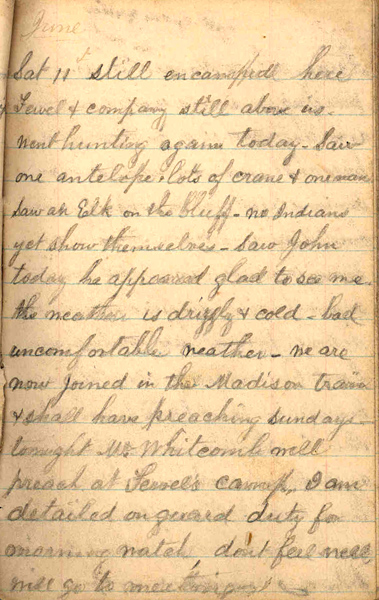 June
Sat 11 still encamped here
& Sewel & company still above us.
Went hunting again today - Saw
one antelope & lots of crane & one man
saw an Elk on the bluff - no Indians
yet show themselves - Saw John
today he appeared glad to see me.
the weather is drizzly & cold - bad
uncomfortable weather - we are
now joined in the Madison train
& shall have preaching sundays -
tonight Mr Whitcomb will
preach at Sewel's camp, I am
detailed on guard duty for
morning watch don't feel well
will go to meeting